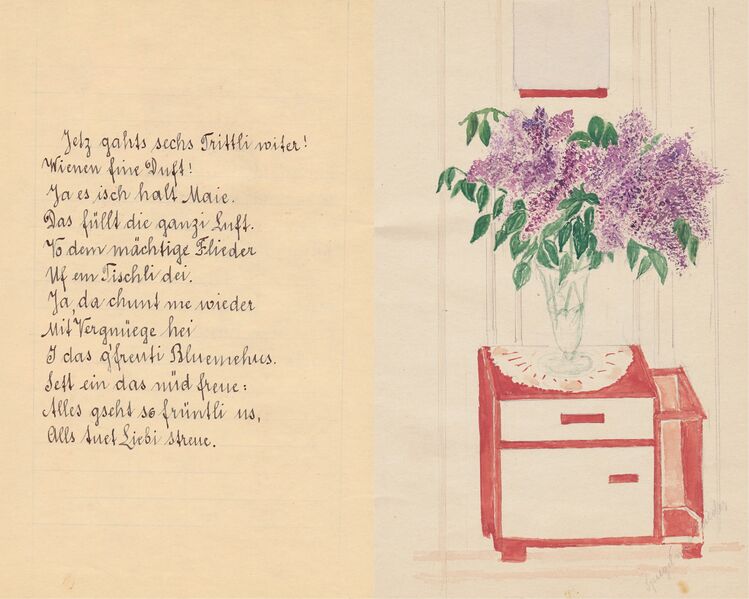 Jetz gahts sechs Trittli witer!
Wienen fine Duft!
Ja es isch halt Maie.
Das füllt die ganzi Luft.
Vo dem mächtige Flieder
Uf em Tischli dei.
Ja, da chunt me wieder
Mit Vergnüege hei
I das g'freuti Bluemehus.
Sett ein das nüd freue:
Alles gseht so früntli us,
Alls tuet Liebi streue.